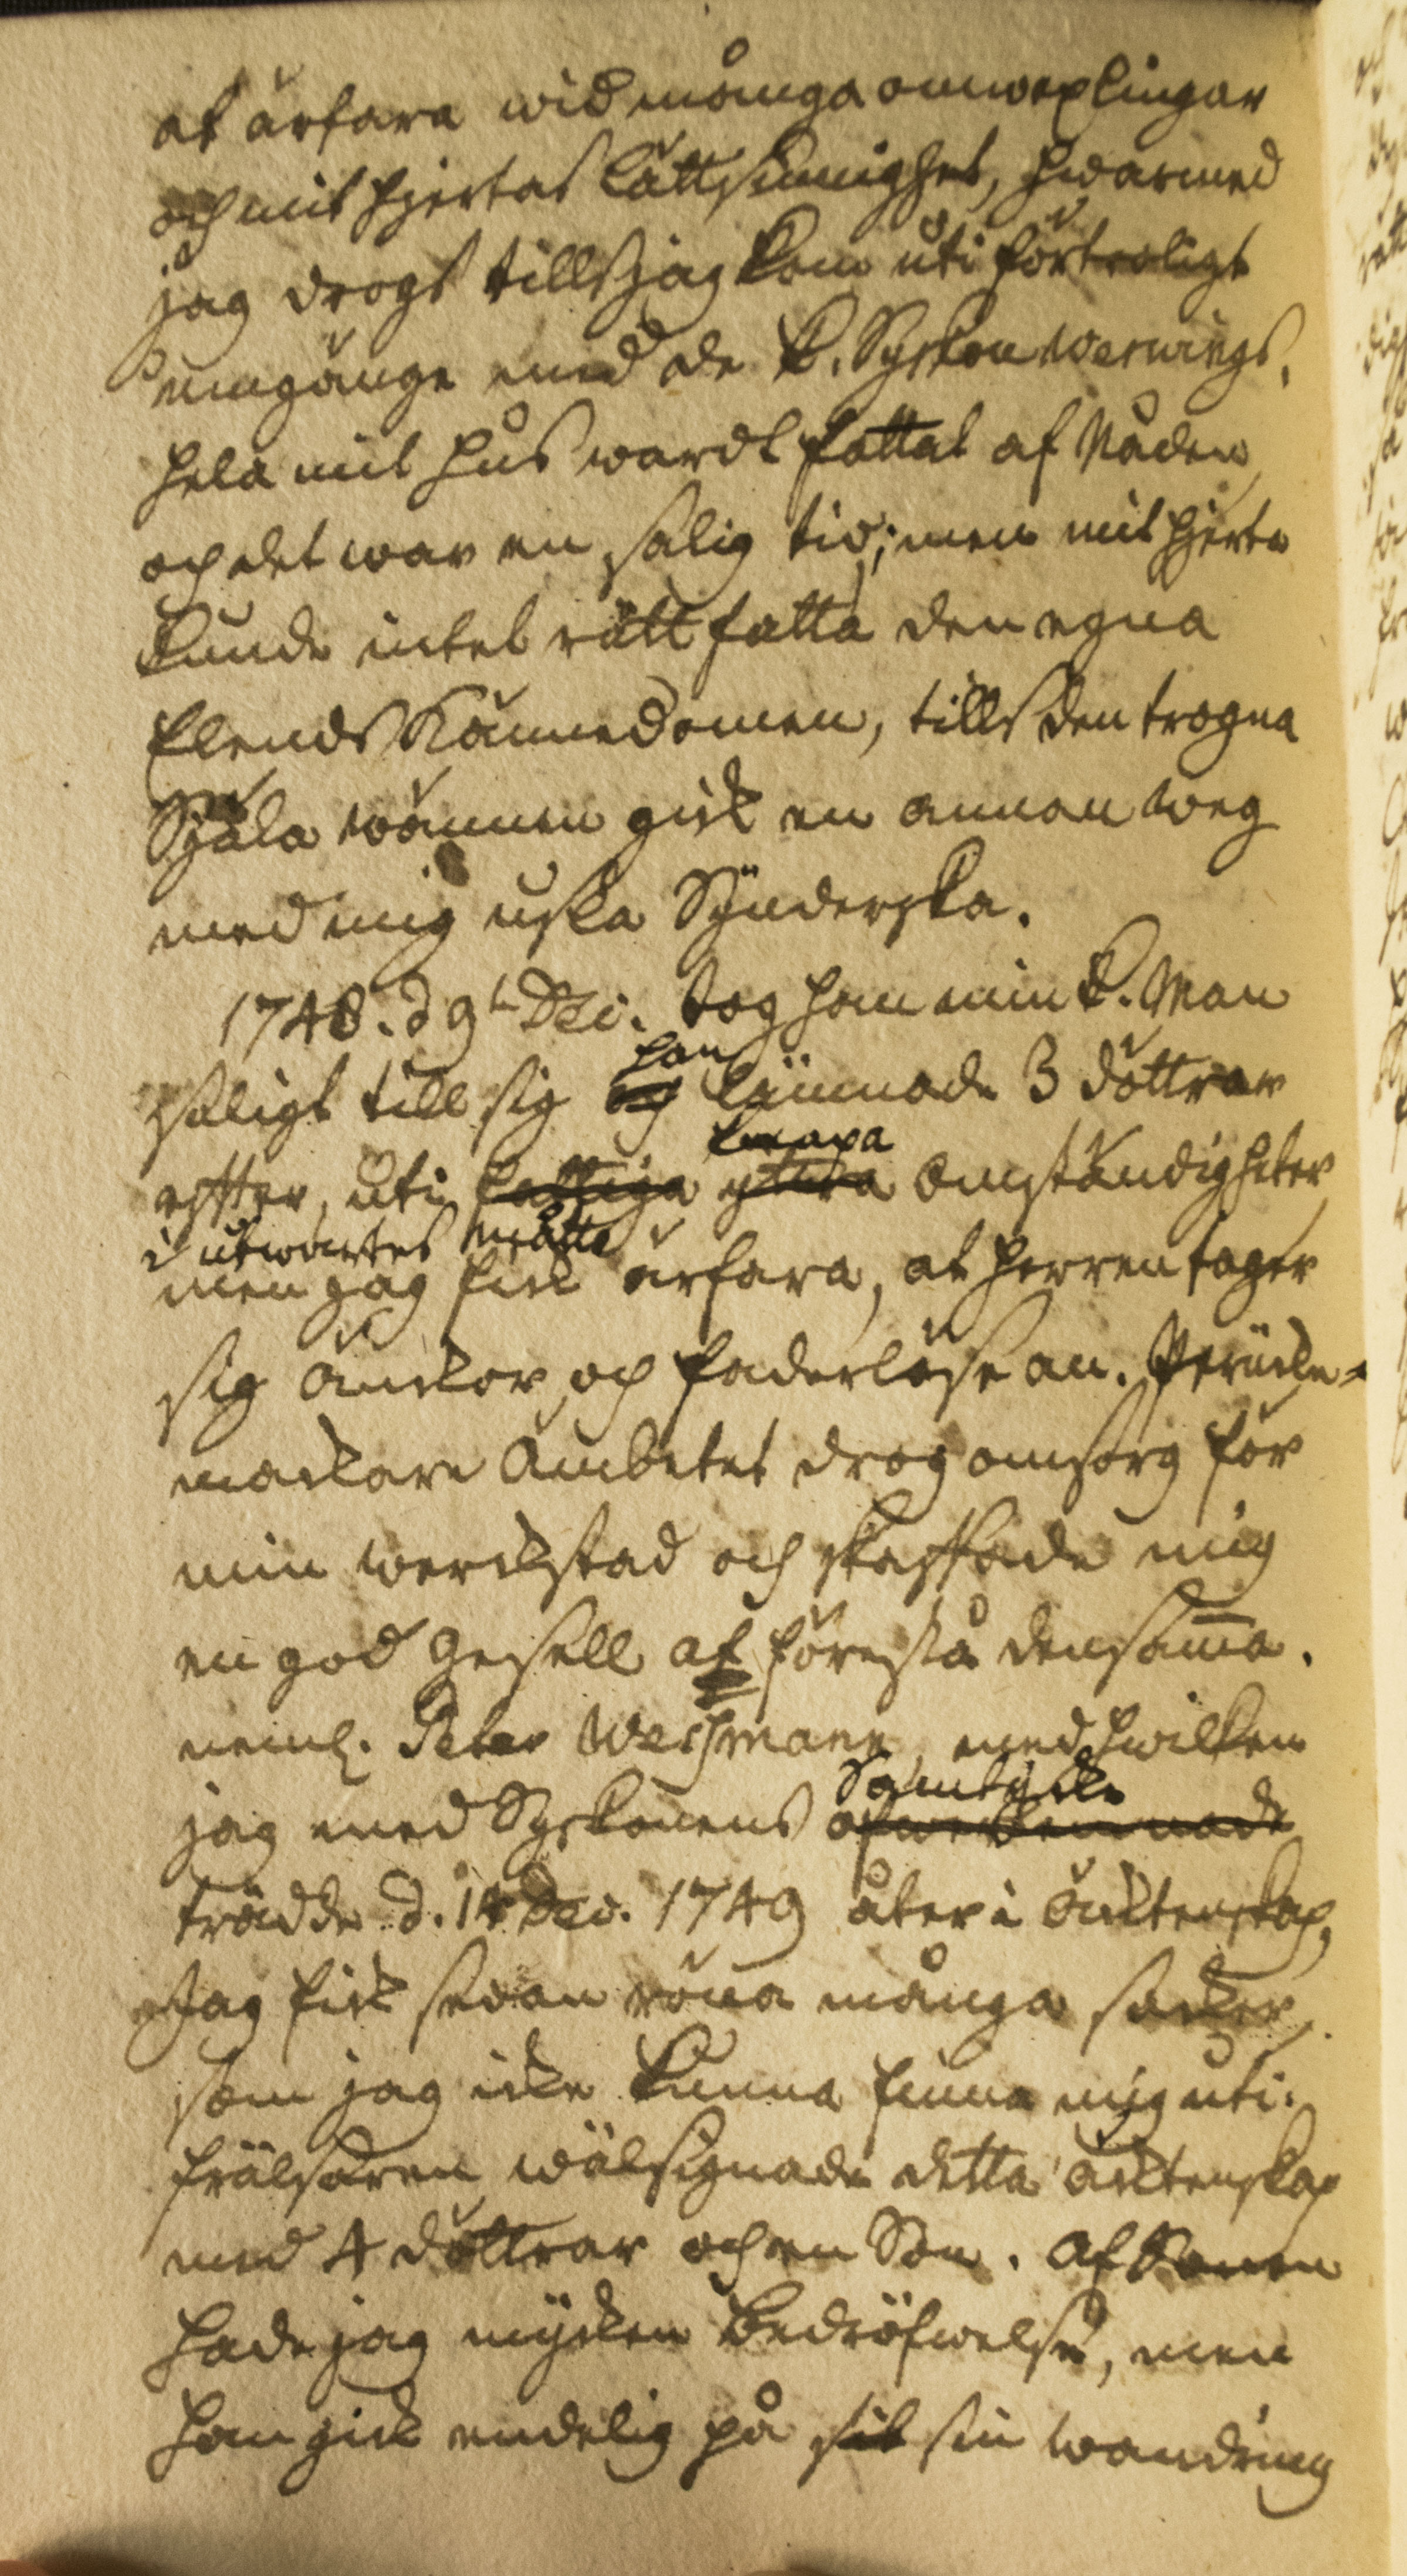 at ärfara wid många omwexlingar
och mit hjertas lättsinnighet, hwarmed
jag drogs tills jag kom uti förtroligt
umgänge med de k. Syskon Wernings,
hela mit hus wardt fattat af Nåden
och det war en salig tid; men mit hjerta
kunde intet rätt fatta den egna
Elends Kännedomen, tills den trogna
Själa wännen gick en annan weg
med mig uska Synderska.
1748. d 9t Dec. tog han min k. Man
saligt till sig och han lämnade 3 döttrar
effter, uti fattiga yttra knapa omständigheter
i utwärtes måtto
men jag fick ärfara, at Herren tager
sig änckor och faderlösa an. Perücke-
mackare Ämbetet drog omsorg för
min werckstad och skaffade mig
en god Gesell at förestå densamma.
neml. Peter Weichmann, med hwilken
jag med Syskonens Samtycke
trädde d. 14 Dec. 1749 åter i Äcktenskap,
Jag fick sedan röna många saker
som jag icke kunna finna mig uti.
frälsaren wälsignade detta äcktenskap
med 4 döttrar och en Son. Af Sonen
hade jag mycken bedröfwelse, men
han gick endelig på sit sin wandring